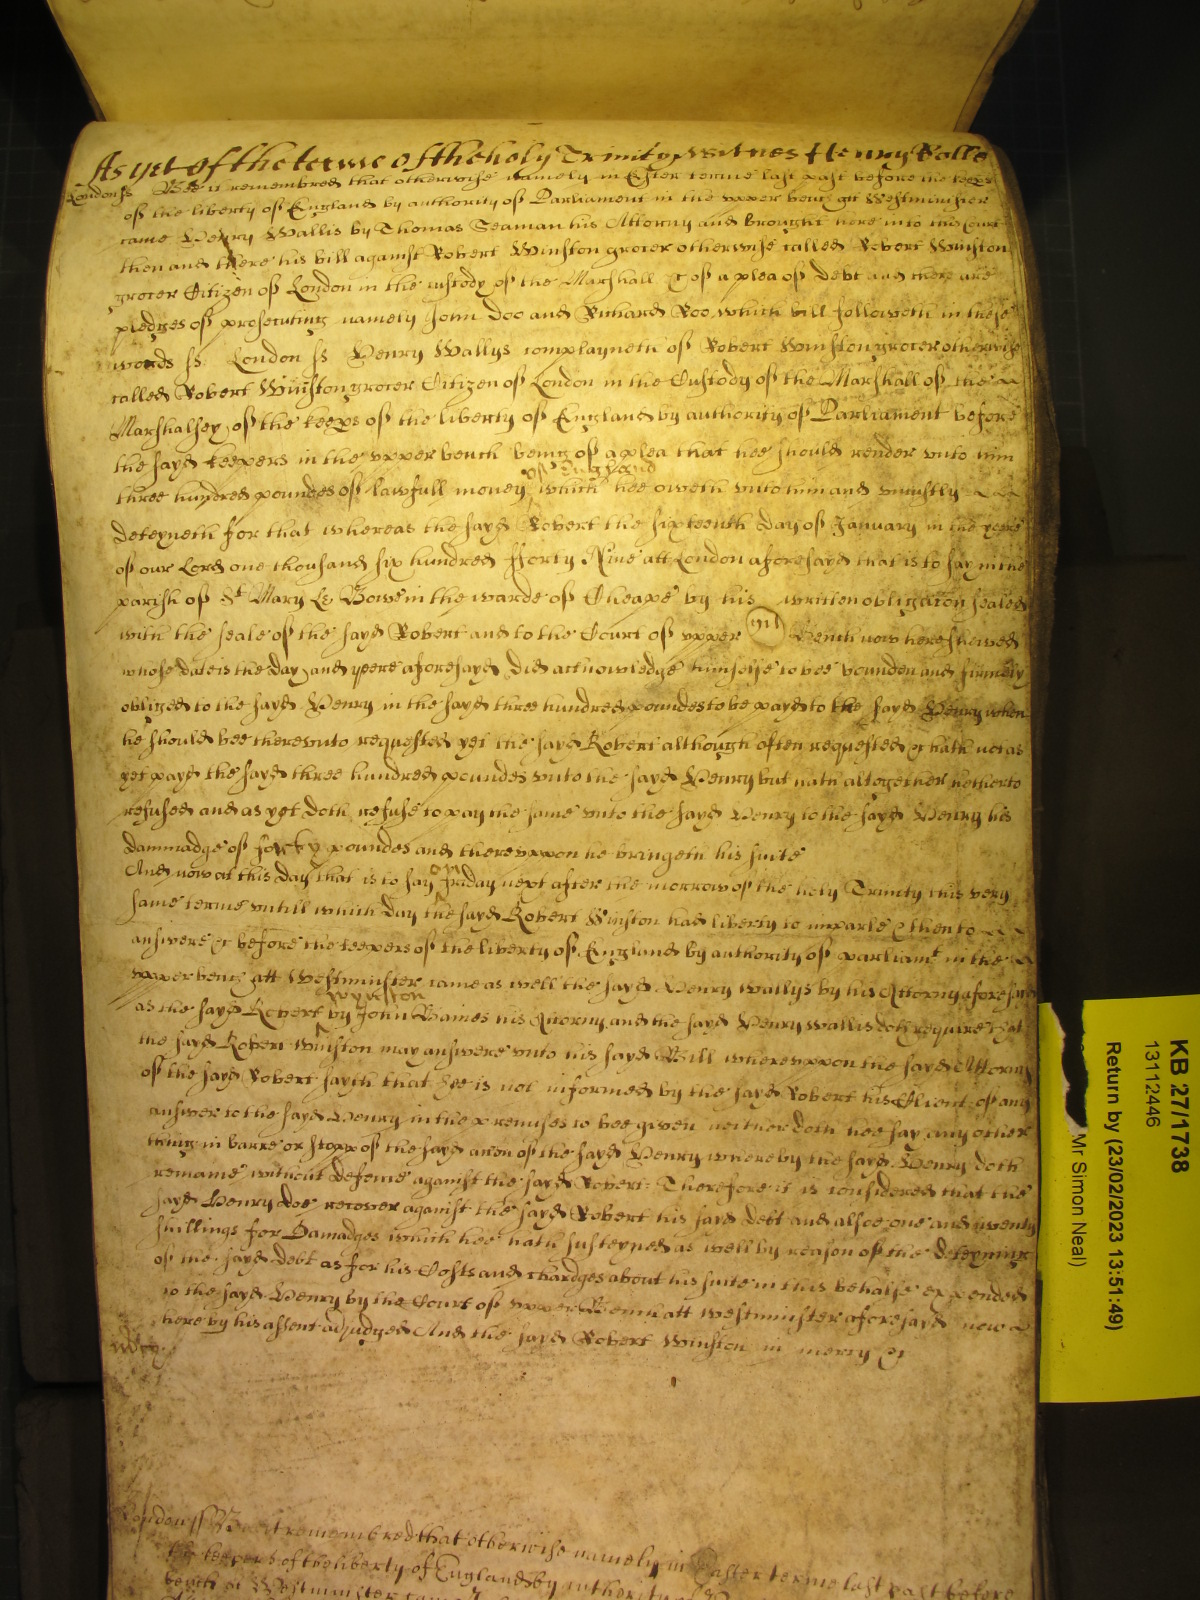 As yet of the terme of the holy Trinity witnes Henry Rolle
London ss Bee it remembred that otherwise namely in Ester terme last past before the keeps
of the liberty of England by authority of Parliament in the upper bench att Westminster
came Henry Wallis by Thomas Seaman his Attorny and brought here into the Court
then and there his bill against Robert Winston grocer otherwise called Robert Winston
grocer Citizen of London in the custody of the Marshall &c of a plea of debt and there are
pledges of prosecuting namely John Doo and Richard Roo which bill followeth in these
words ss. London ss Henry Wallys complayneth of Robert Winston grocer otherwise
called Robert Winston grocer Citizen of London in the Custody of the Marshall of the
Marshalsey of the keeps of the liberty of England by authority of Parliament before
the sayd keepers in the upper bench being of a plea that hee should render unto him
of England
three hundred poundes of lawfull money which hee oweth unto him and uniustly
deteyneth for that whereas the sayd Robert the sixteenth day of January in the yeere
of our Lord one thousand six hundred fforty Nine att London aforesayd that is to say in the
parish of St Mary Le Bowe in the warde of Cheape by his written obligacon sealed
with the seale of the sayd Robert and to the Court of upper Bench now here shewed
whose date is the day and yeere aforesayd did acknowledge himselfe to bee bounden and firmely
obliged to the sayd Henry in the sayd three hundred poundes to be payd to the sayd Henry when
he should bee thereunto requested yet the sayd Robert although often requested &c hath not as
yet payd the sayd three hundred poundes unto the sayd Henry but hath altogether hetherto
refused and as yet doth refuse to pay the same unto the sayd Henry to the sayd Henry his
dammadge of forty poundes and thereuppon he bringeth his suite
And now at this day that is to say on Friday next after the morrow of the holy Trinity this very
same terme untill which day the sayd Robert Winston had liberty to imparle & then to
answere &c before the keepers of the liberty of England by authority of parliamt in the
upper bench att Westminster came as well the sayd Henry Wallys by his Attorny aforesayd
Wynston
as the sayd Robert by John Baines his Attorny and the sayd Henry Wallis doth require that
the sayd Robert Winston may answere unto his sayd Bill whereuppon the sayd Attorny
of the sayd Robert sayth that hee is not informed by the sayd Robert his Client of any
answer to the sayd Henry in the premises to bee given neither doth hee say any other
thing in barre or stopp of the sayd accon of the sayd Henry whereby the sayd Henry doth
remaine without defence against the sayd Robert: Therefore it is considered that the
sayd Henry doe recover against the sayd Robert his sayd debt and alsoe one and twenty
shillings for Damadges which hee hath susteyned as well by reason of the deteyning
of the sayd debt as for his Costs and chardges about his suite in this behalfe expended
to the sayd Henry by the Court of upper Bench att Westminster aforesayd now
here by his assent adjudged And the sayd Robert Winston in mercy &c
mcy
London ss Bee it remembred that otherwise namely in Easter terme last past before
the keepers of the liberty of England by authority
bench at Westminster came
KB 27/1738
13112446
Return by (23/02/2023 13:51:49)
Mr Simon Neal)